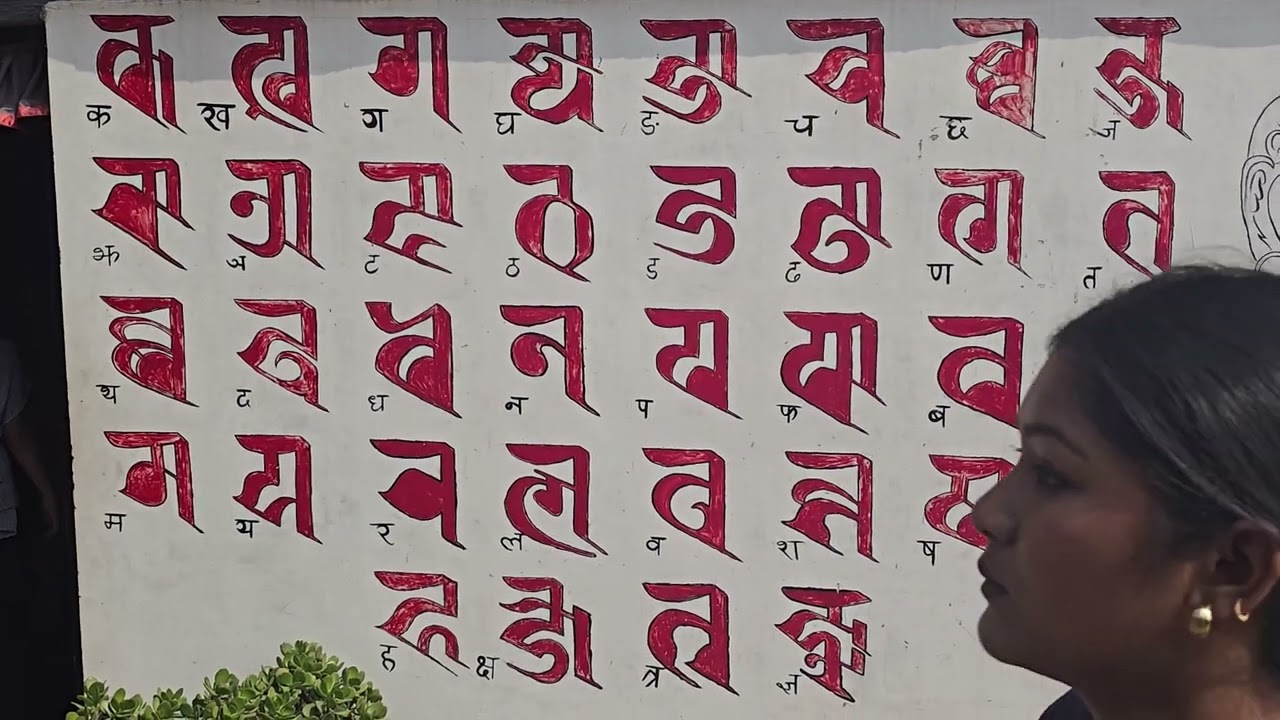 क ख ग घ ङ च छ ज
झ ञ ट ठ ड ढ ण त
थ द ध न प फ ब
म य र ल व श ष
ह क्ष त्र ज्ञ